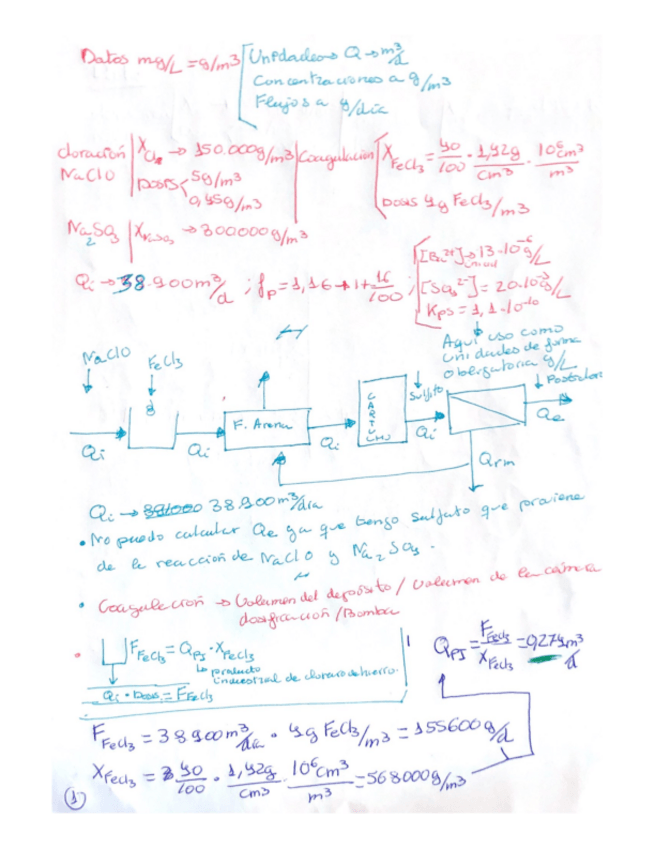 Datos mg/L = g/m³
Unidades → Q → m³/d
Concentraciones a g/m³
Flujos a g/día
cloración NaClO
X Cl₂ → 150.000g/m³
DOSIS 5g/m³
0,45g/m³
Coagulación
X FeCl₃ = 40/100 · 1,42g/cm³ · 10⁶cm³/m³
Dosis 4g FeCl₃/m³
Na₂SO₃
→ 300000g/m³
Qi → 38.900m³/d ; fp = 1,16 → 1 + 16/100 ;
[Ba²⁺] → 13·10⁻⁶g/L
[SO₄²⁻] = 20·10⁻³g/L
Kps = 1,1·10⁻¹⁰
Aquí uso como
unidades de forma
obligatoria g/L
NaClO
FeCl₃
F. Arena
CARTUCHO
Sulfito
Qi
Qi
Qi
Qi
Qe
Qrm
Qi → 38.900m³/día
• No puedo calcular Qe ya que tengo sulfato que proviene
de la reacción de NaClO y Na₂SO₃.
• Coagulación → Volumen del depósito / Volumen de la cámara
dosificación/Bomba
F FeCl₃ = QPJ · X FeCl₃
↳ producto
industrial de cloruro de hierro
Qi · Dosis = F FeCl₃
QPJ = F FeCl₃ / X FeCl₃ = 0,274 m³/d
F FeCl₃ = 38900m³/día · 4g FeCl₃/m³ = 155600g/d
X FeCl₃ = 40/100 · 1,42g/cm³ · 10⁶cm³/m³ = 568000g/m³
1